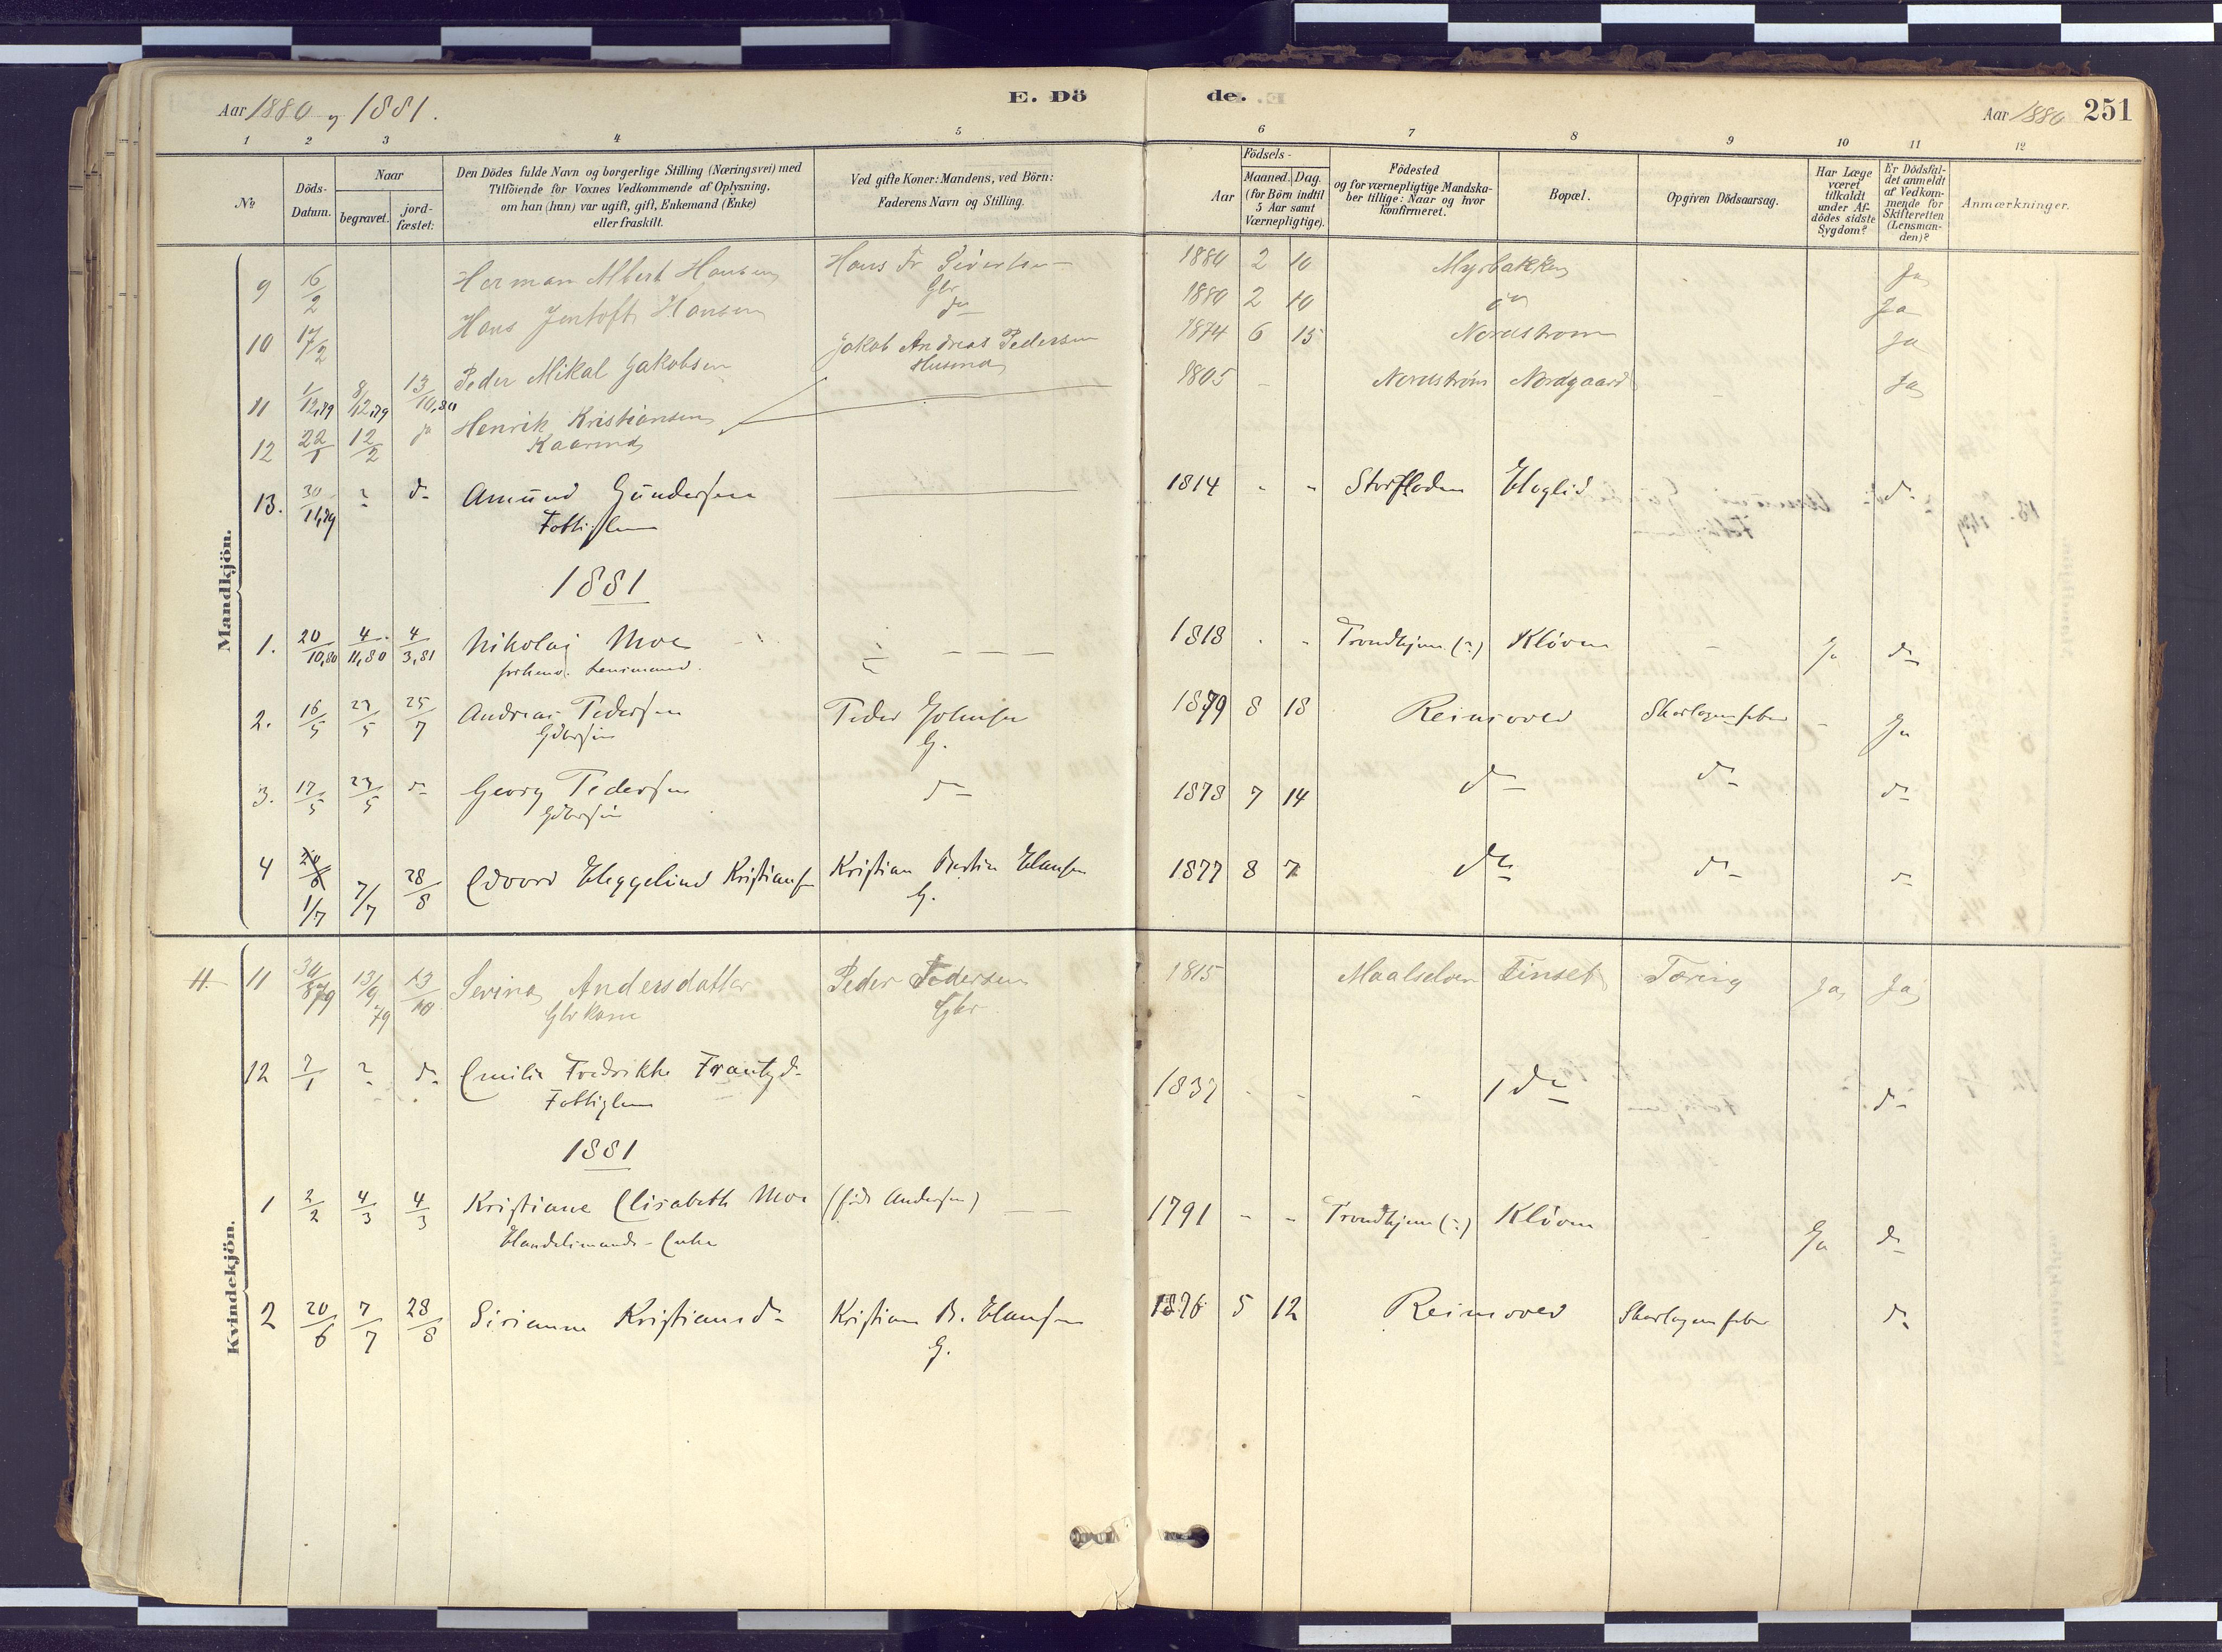 Aar 1880 og 1881.
E. Dö
de.
Aar 1880 251
1 2 3 4 5 6 7 8 9 10 11 12
No
Döds-
Datum.
Naar
begravet.
jord-
fæstet:
Den Dödes fulde Navn og borgerlige Stilling (Næringsvei) med
Tilföiende for Voxnes Vedkommende af Oplysning,
om han (hun) var ugift, gift, Enkemand (Enke)
eller fraskilt.
Ved gifte Koner: Mandens, ved Börn:
Faderens Navn og Stilling.
Födsels-
Aar
Maaned. Dag.
(for Börn indtil
5 Aar samt
Værnepligtige).
Födested
og for værnepligtige Mandska-
ber tillige: Naar og hvor
konfirmeret.
Bopæl.
Opgiven Dödsaarsag.
Har Læge
været
tilkaldt
under Af-
dödes sidste
Sygdom?
Er Dödsfal-
det anmeldt
af Vedkom-
mende for
Skifteretten
(Lensman-
den)?
Anmærkninger.
Mandkjön.
9 16/2 Herman Albert Hansen Hans Fr Sivertsen 1880 2 10 Myrbakken Ja
Gbr
10 17/2 Hans Jentoft Hansen do 1880 2 10 do Ja
11 1/12,79 8/12,79 13/10,80 Peder Mikal Jakobsen Jakob Andreas Pedersen 1874 6 15 Nordstrøm Ja
Husmd
12 22/1 12/2 ja Henrik Kristiansen 1805 - Nordstrøm Nordgaard Ja
Kaarmd
13. 30/11,79 ? do Amund Gundersen 1814 - - Storfloden Høglid do
Fattiglem
1881
1. 20/10,80 4/11,80 4/3,81 Nikolai Moe 1818 - - Trondhjem (?) Kløven - Ja do
forhenv. Lensmand.
2. 16/5 23/5 25/7 Andreas Pedersen Peder Johnsen 1879 8 18 Reinsvold Skarlagensfeber - Ja
Gbrsøn G.
3. 17/5 23/5 do Georg Pedersen do 1878 7 14 do do do
Gbrsøn
4 1/7 7/7 28/8 Edvard Heggelund Kristiansen Kristian Bertin Hansen 1877 8 7 do do do
G.
Kvindekjön.
11 30/8 79 13/9 79 13/10 Sevina Andersdatter Peder Pedersen 1815 Maalselven Finset Tæring Ja Ja
Gbrkone Gbr
12 7/1 ? do Emilie Fredrikke Frantzd. 1837 - - - do do
Fattiglem
1881
1 2/2 4/3 4/3 Kristiane Elisabeth Moe (født Andersen) 1791 - - Trondhjem (?) Kløven - Ja do
Handelsmands-Enke
2 20/6 7/7 28/8 Sirianna Kristiansd. Kristian B. Hansen 1876 5 12 Reinsvold Skarlagensfeber do
G.